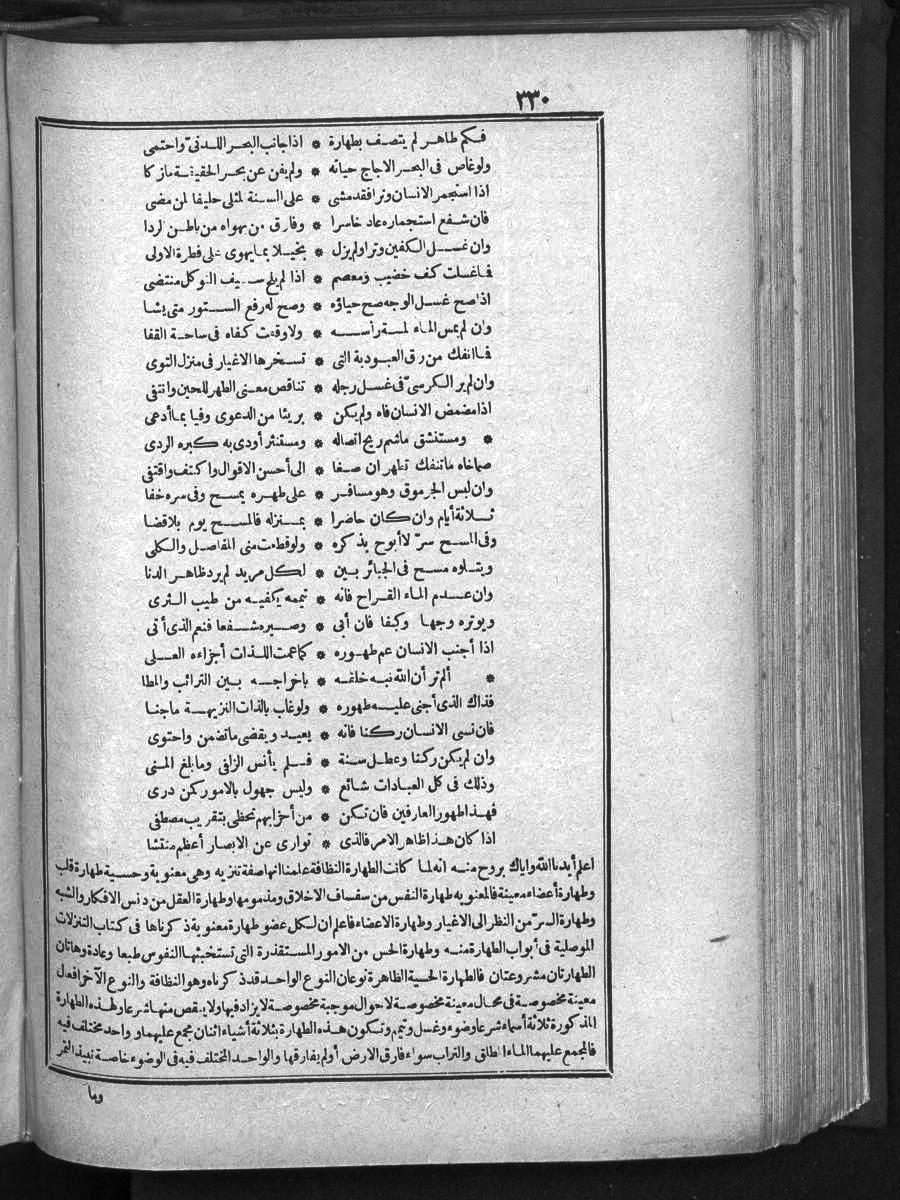 ٣٣٠
فكم طاهر لم يتصف بطهارة * اذا جانب البحر اللدنيّ واحتمى
ولو غاص فى البحر الاجاج حياته * ولم يفن عن بحر الحقيقة ماز كا
اذا استجمر الانسان وترا فقد مشى * على السنة المثلى حليفا لمن مضى
فان شفع استجماره عاد خاسرا * وفارق من يهواه من باطن الردا
وان غسل الكفين وترا ولم يزل * بخيلا بما يهوى على فطرة الاولى
فما غسلت كف خضيب ومعصم * اذا لم يلح سيف التوكل منتضى
اذا صح غسل الوجه صح حياؤه * وصح له رفع الستور متى يشا
وان لم يمس الماء لمة رأسه * ولا وقعت كفاه فى ساحة القفا
فما انفك من رق العبودية التى * تسخرها الاغيار فى منزل التوى
وان لم ير الكرسىّ فى غسل رجله * تناقص معنى الطهر للحين وانتفى
اذا مضمض الانسان فاه ولم يكن * بريئا من الدعوى وفيا بما أدعى
* ومستنشق ماشم ريح اتصاله * ومستنثر أودى به كبره الردى
صماخاه ماتنفك تطهر ان صغا * الى أحسن الاقوال واكتف واقتفى
وان لبس الجرموق وهو مسافر * على طهره يمسح وفى سره خفا
ثلاثة أيام وان كان حاضرا * بمنزله فالمسح يوم بلا قضا
وفى المسح سرّ لا أبوح بذكره * ولو قطعت منى المفاصل والكلى
ويتلوه مسح فى الجبائر بين * لكل مريد لم يرد ظاهر الدنا
وان عدم الماء القراح فانه * تيممه يكفيه من طيب الثرى
ويوتره وجها وكفا فان أبى * وصيره شفعا فنعم الذى أتى
اذا أجنب الانسان عم طهوره * كما عمت اللذات أجزاءه العلى
* ألم تر أن الله نبه خلقه * باخراجه بين الترائب والمطا
فذاك الذى أجنى عليه طهوره * ولو غاب بالذات النزيهة ماجنا
فان نسى الانسان ركنا فانه * يعيد ويقضى ماتضمن واحتوى
وان لم يكن ركنا وعطل سنة * فلم يأنس الزلفى وما بلغ المنى
وذلك فى كل العبادات شائع * وليس جهول بالامور كمن درى
فهذا طهور العارفين فان تكن * من أحزابهم تحظى بتقريب مصطفى
اذا كان هذا ظاهر الامر فالذى * توارى عن الابصار أعظم منتشا
اعلم أيدنا الله واياك بروح منه انه لما كانت الطهارة النظافة علمنا انها صفة تنزيه وهى معنوية وحسية طهارة قلب
وطهارة أعضاء معينة فالمعنوية طهارة النفس من سفساف الاخلاق ومذمومها وطهارة العقل من دنس الافكار والشبه
وطهارة السرّ من النظر الى الاغيار وطهارة الاعضاء فاعلم ان لكل عضو طهارة معنوية ذكرناها فى كتاب التنزلات
الموصلية فى أبواب الطهارة منه وطهارة الحس من الامور المستقذرة التى تستخبثها النفوس طبعا وعادة وهاتان
الطهارتان مشروعتان فالطهارة الحسية الظاهرة نوعان النوع الواحد قد ذكرناه وهو النظافة والنوع الآخر افعال
معينة مخصوصة فى محال معينة مخصوصة لاحوال موجبة مخصوصة لا يزاد فيها ولا ينقص منها شرعا ولهذه الطهارة
المذكورة ثلاثة أسماء شرعا وضوء وغسل وتيمم وتكون هذه الطهارة بثلاثة أشياء اثنان مجمع عليهما وواحد مختلف فيه
فالمجمع عليهما الماء الطلق والتراب سواء فارق الارض أو لم يفارقها والواحد المختلف فيه فى الوضوء خاصة نبيذ التمر
وما